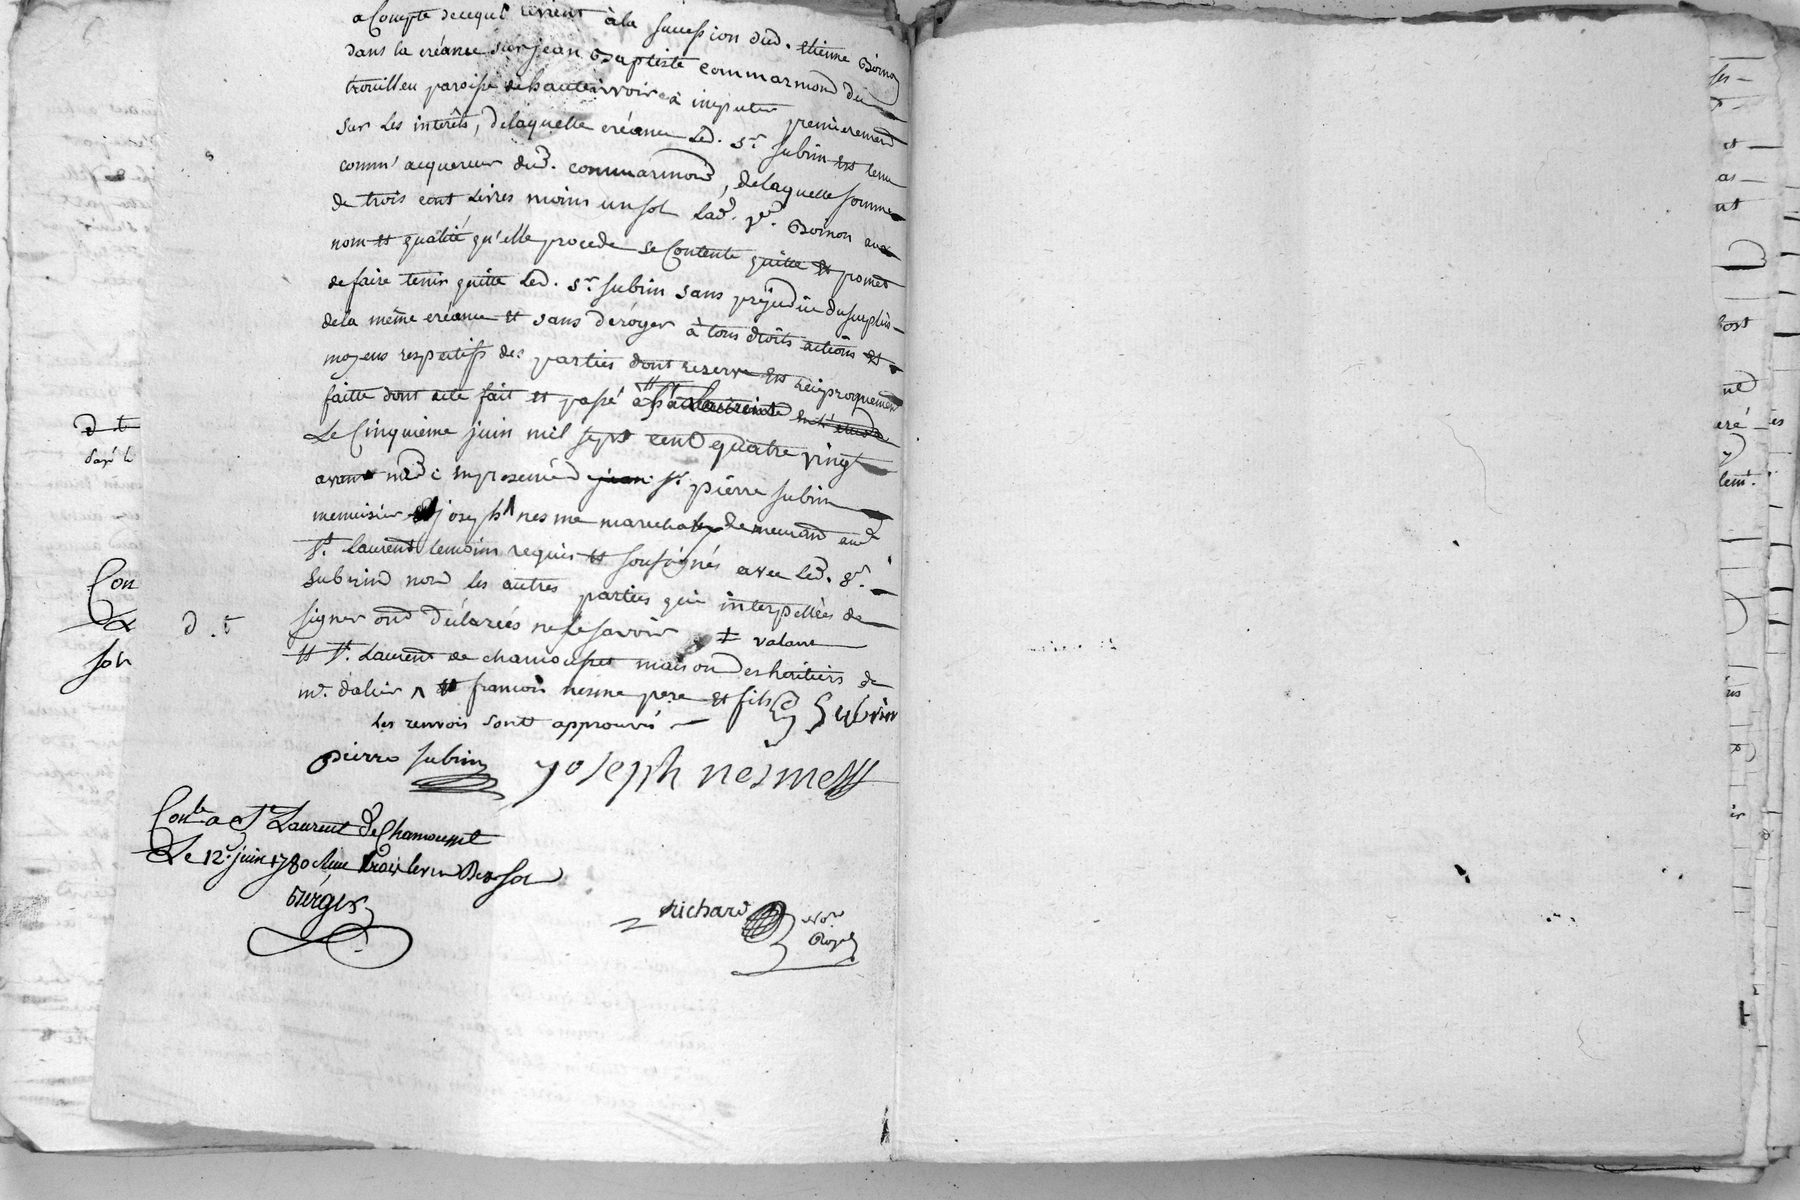 a Compte de ce qui revient à la succession dud. etienne Boinon
dans la créance sur jean Baptiste commarmond du
trouilleu paroisse de hauterivoire à imputer premierement
sur les interêts, de laquelle créance led. sr. subrin est tenu
comm' acquereur dud. commarmond, de laquelle somme
de trois cent livres moins un sol lad. ve. Boinon aux
nom et qualité qu'elle procede se contente quitte et promet
de faire tenir quitte led. sr. subrin sans prejudice du surplus
de la même créance et sans déroger à tous droits actions et
moyens respectifs des parties dont reserve est reciproquement
faitte dont acte fait et passé à
Le Cinquieme juin mil sept cent quatre vingt
avant midi en presence de sr. pierre subrin
menuisier et joseph nesme marechal demeurant aud.
st. laurent temoins requis et soussignés avec led. sr.
subrin non les autres parties qui interpellées de
signer ont déclarées ne le savoir ‡ valant
et st. Laurent de chamousset maison des heritiers de
mr. dalier ^ et francois nesme pere et fils Subrin
les renvois sont approuvé
pierre subrin joseph nesme
Conle a St Laurent de Chamousset
Le 12. juin 1780 Reçu trois livres Dix sol
richard Nore
Royal
d t
payé le
Con
Le
sol
d. t